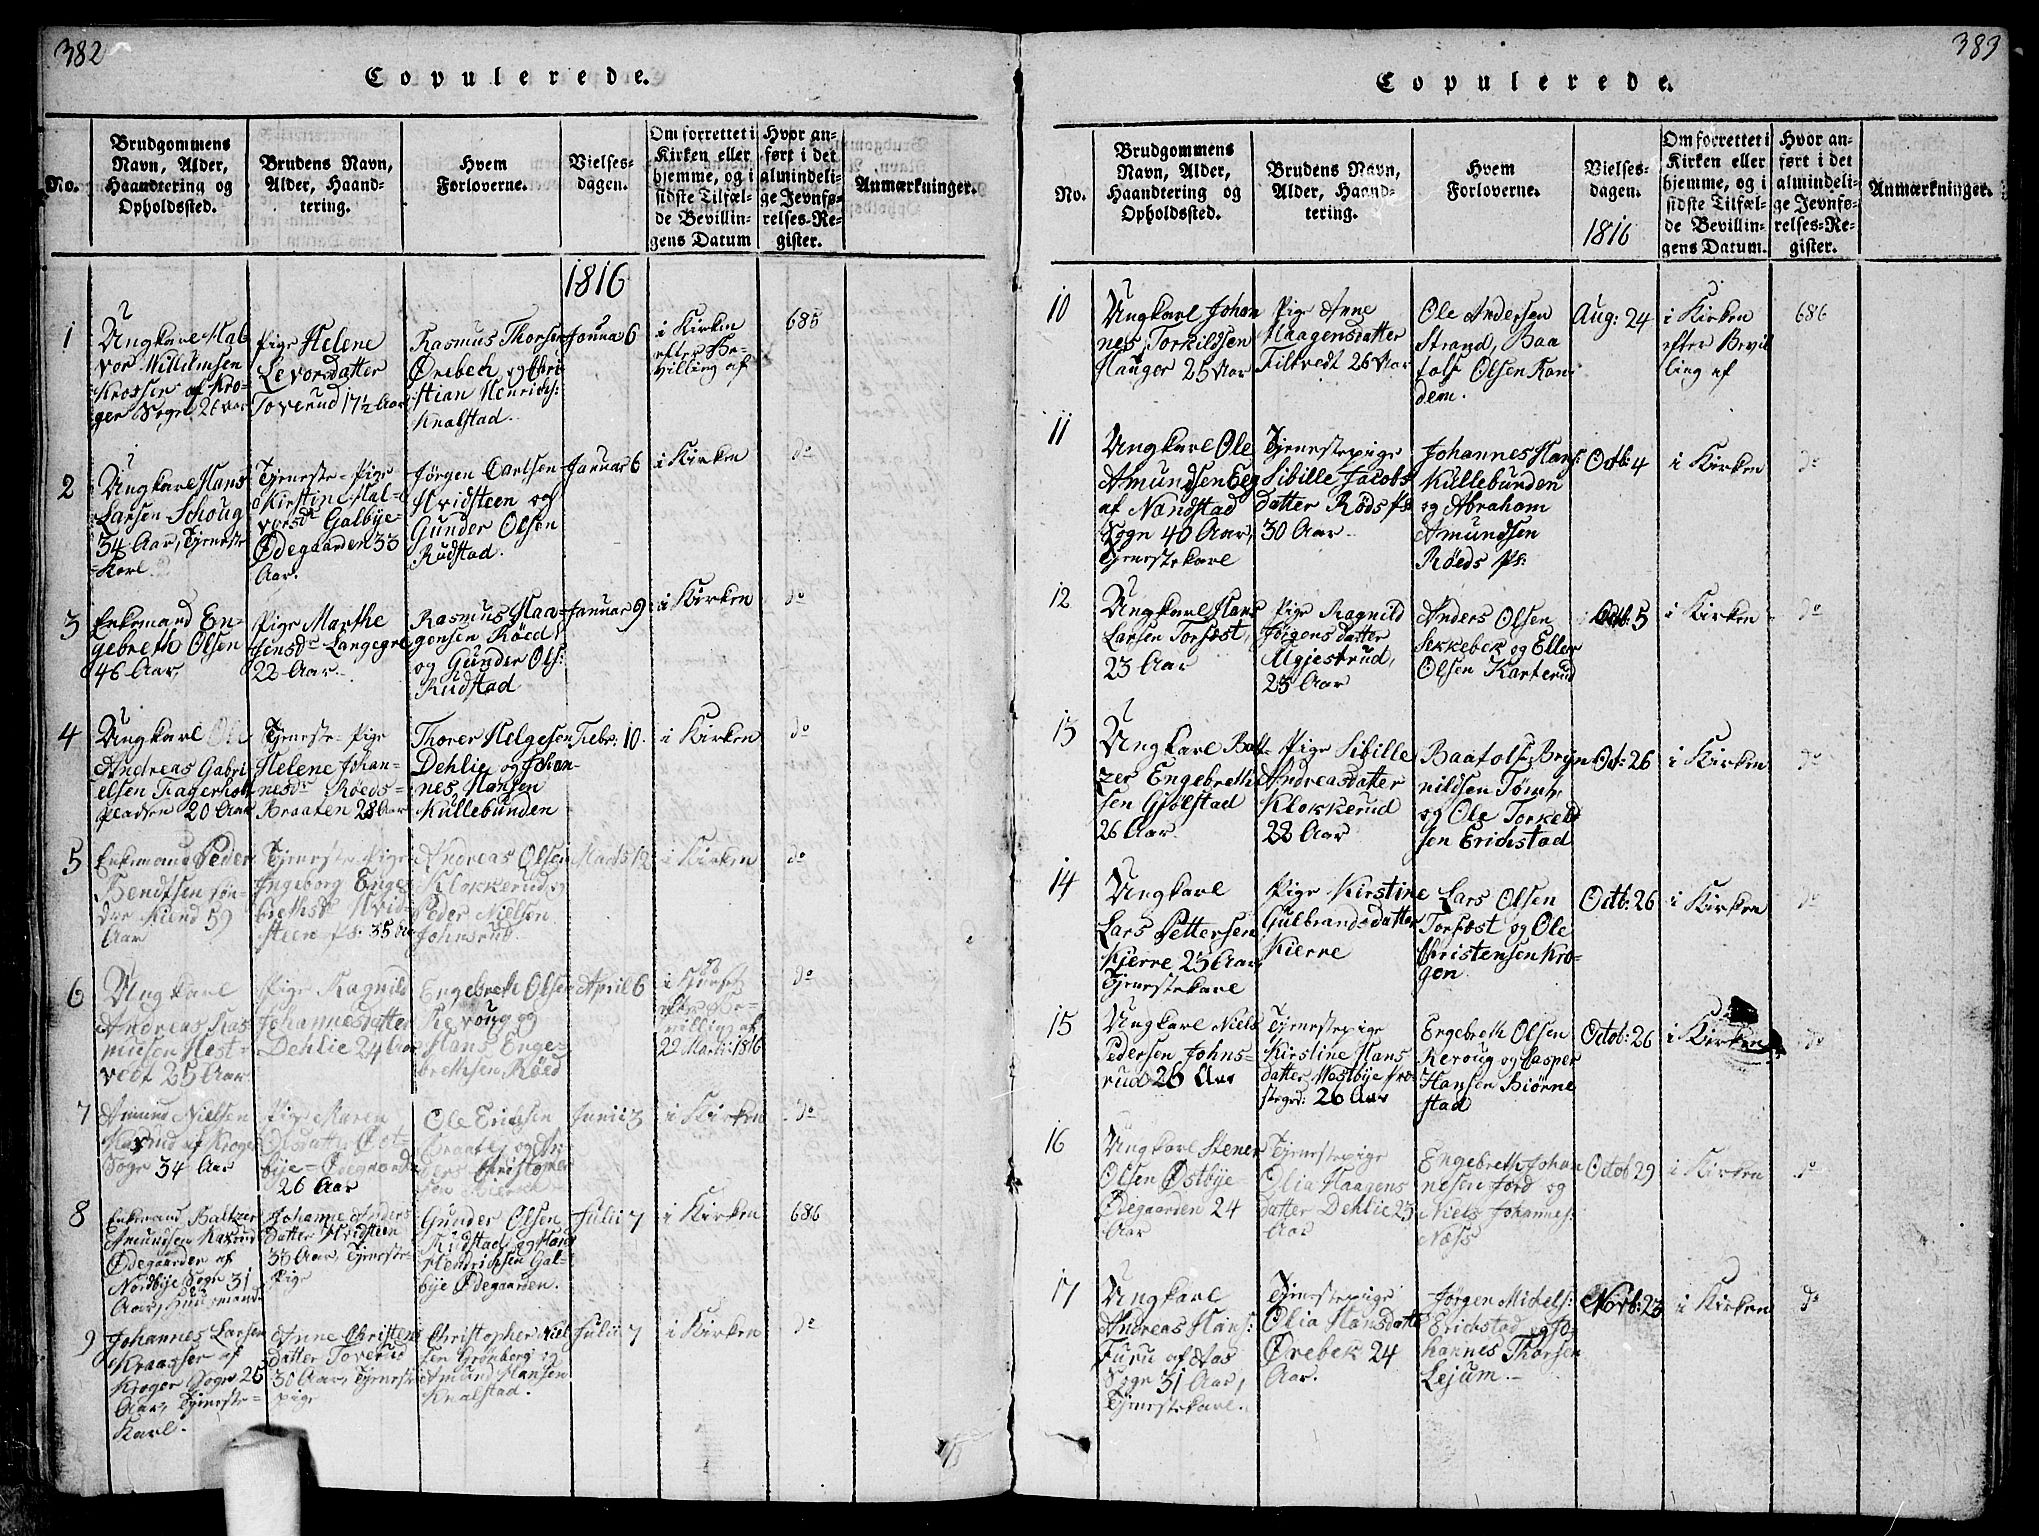 382
Copulerede.
No.
Brudgommens
Navn, Alder,
Haandtering og
Opholdssted.
Brudens Navn,
Alder, Haand-
tering.
Hvem
Forloverne.
Vielses-
dagen.
Om forrettet i
Kirken eller
hjemme, og i
sidste Tilfæl-
de Bevillin-
gens Datum
Hvor an-
ført i det
almindeli-
ge Jevnfø-
relses-Re-
gister.
Anmærkninger.
1816
1
Ungkarl Hal
vor Willumsen
Krosser af Kro-
ger Sogn 26 Aar
Pige Helene
Levorsdatter
Toverud 17½ Aar
Rasmus Thorsen
Ørebech og Chri
stian Henrichs:
Knalstad.
Janua 6
i Kirken
efter Be-
villing af
685
2
Ungkarl Hans
Larsen Schoug
34 Aar, Tjeneste
Karl.
Tjeneste-Pige
Kirstine Hal-
vorsdr Galbye-
Ødegaarden 33
Aar.
Jørgen Carlsen
Hvidsteen og
Gunder Olsen
Rudstad.
Januar 6
i Kirken
do
3
Enkemand En-
gebreth Olsen
46 Aar,
Pige Marthe
Jensdr Langegre
22 Aar.
Rasmus Haa-
gensen Röed
og Gunder Ols:
Rudstad
Januar 9
i Kirken
do
4
Ungkarl Ole
Andreas Gabri
elsen Fagerholt
pladsen 20 Aar
Tjeneste-Pige
Helene Johan-
nesdr Röeds-
Braaten 28 Aar
Thorer Helgesen
Dehlie og Johan-
nes Hansen
Kullebunden
Febr: 10.
i Kirken
do
5
Enkemand Peder
Bendtsen Søn-
dre Kiend 59
Aar
Tjeneste-Pige
Ingeborg Enge-
brethsdr Hvid-
steen ps: 35 Aar
Andreas Olsen
Klokkerud og
Peder Nielsen
Johnsrud.
Marts 12
i Kirken
do
6
Ungkarl
Andreas Ras
musen Hest-
vedt 25 Aar
Pige Ragnild
Johannesdatter
Dehlie 24 Aar
Engebreth Olsen
Revoug og
Hans Enge-
brethsen Röed
April 6
i Huuset
efter Be-
villing af
22 Marti: 1816
do
7
Amund Nielsen
Haxrud af Kroger
Sogn 34 Aar
Pige Maren
Olsdatter Øst-
bye-Ødegaarde
26 Aar
Ole Erichsen
Braate og An-
ders Christopher
sen
Junii 3
i Kirken
do
8
Enkemand Baltzer
Amundsen Haxrud
Ødegaarder af
Nordbye Sogn 31
Aar, Huusmand
Johanne Anders
datter Hvidsteen
33 Aar, Tjeneste-
Pige
Gunder Olsen
Rudstad og Hans
Hendrichsen Gal-
bye Ødegaarden.
Julii 7
i Kirken
686
9
Johannes Larsen
Kraagser af
Kroger Sogn 25
Aar, Tjeneste-
Karl.
Anne Christens
datter Toverud
30 Aar, Tjeneste
pige
Christopher Niel
sen Grönberg og
Amund Hansen
Knalstad.
Julii 7
i Kirken
do
383
Copulerede.
No.
Brudgommens
Navn, Alder,
Haandtering og
Opholdssted.
Brudens Navn,
Alder, Haand-
tering.
Hvem
Forloverne.
Vielses-
dagen.
1816
Om forrettet i
Kirken eller
hjemme, og i
sidste Tilfæl-
de Bevillin-
gens Datum.
Hvor an-
ført i det
almindeli-
ge Jevnfø-
relses-Re-
gister.
Anmærkninger.
10
Ungkarl Johan
nes Torkildsen
Hauger 25 Aar
Pige Anne
Haagensdatter
Filtvedt 26 Aar
Ole Andersen
Strand, Baa
tolf Olsen Ran
dem.
Aug: 24
i Kirken
efter Bevil
ling af
686
11
Ungkarl Ole
Amundsen Eeg
af Nandstad
Sogn 40 Aar,
Tjenestekarl
Tjenestepige
Sibille Jacobs
datter Röds ps
30 Aar
Johannes Hans:
Kullebunden
og Abraham
Amundsen
Röeds ps:
Octb: 4
i Kirken
do
12
Ungkarl Hans
Larsen Torfæst,
23 Aar
Pige Ragnild
Jörgensdatter
Mgjestrud,
25 Aar
Anders Olsen
Sekkebek og Eller
Olsen Karterud
Octb: 5
i Kirken
do
13
Ungkarl Balt
zer Engebreth
sen Gjölstad
26 Aar.
Pige Sibille
Andreasdatter
Klokkerud
28 Aar
Baatolf Bryn
nildsen Tömt,
og Ole Torkeld
sen Erichstad
Oct: 26
i Kirken
do
14
Ungkarl
Lars Pettersen
Kjerre 25 Aar,
Tjenestekarl
Pige Kirstine
Gulbrandsdatter
Kierre
Lars Olsen
Torfæst og Ole
Christensen Kro-
gen.
Octb: 26
i Kirken
do
15
Ungkarl Niels
Pedersen Johns-
rud 26 Aar
Tjenestepige
Kirstine Hans
datter Vestbye Præ
stegrd: 26 Aar
Engebreth Olsen
Revoug og Casper
Hansen Biörne
stad
Octob: 26
i Kirken
do
16
Ungkarl Stener
Olsen Østbye-
Ødegaarden 24
Aar
Tjenestepige
Olia Haagens
datter Dehlie 23
Aar
Engebreth Johan
nesen Jord og
Niels Johannes:
Næss
Octob 29
i Kirken
do
17
Ungkarl
Andreas Hans:
Furu af Aas
Sogn 31 Aar,
Tjenestekarl.
Tjenestepige
Olia Hansdatter
Ørebek 24
Aar.
Jørgen Michels:
Erichstad og Jo-
hannes Thorsen
Lejum.
Novb: 23
i Kirken
do